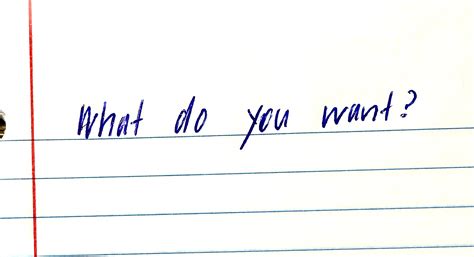 What do you want?